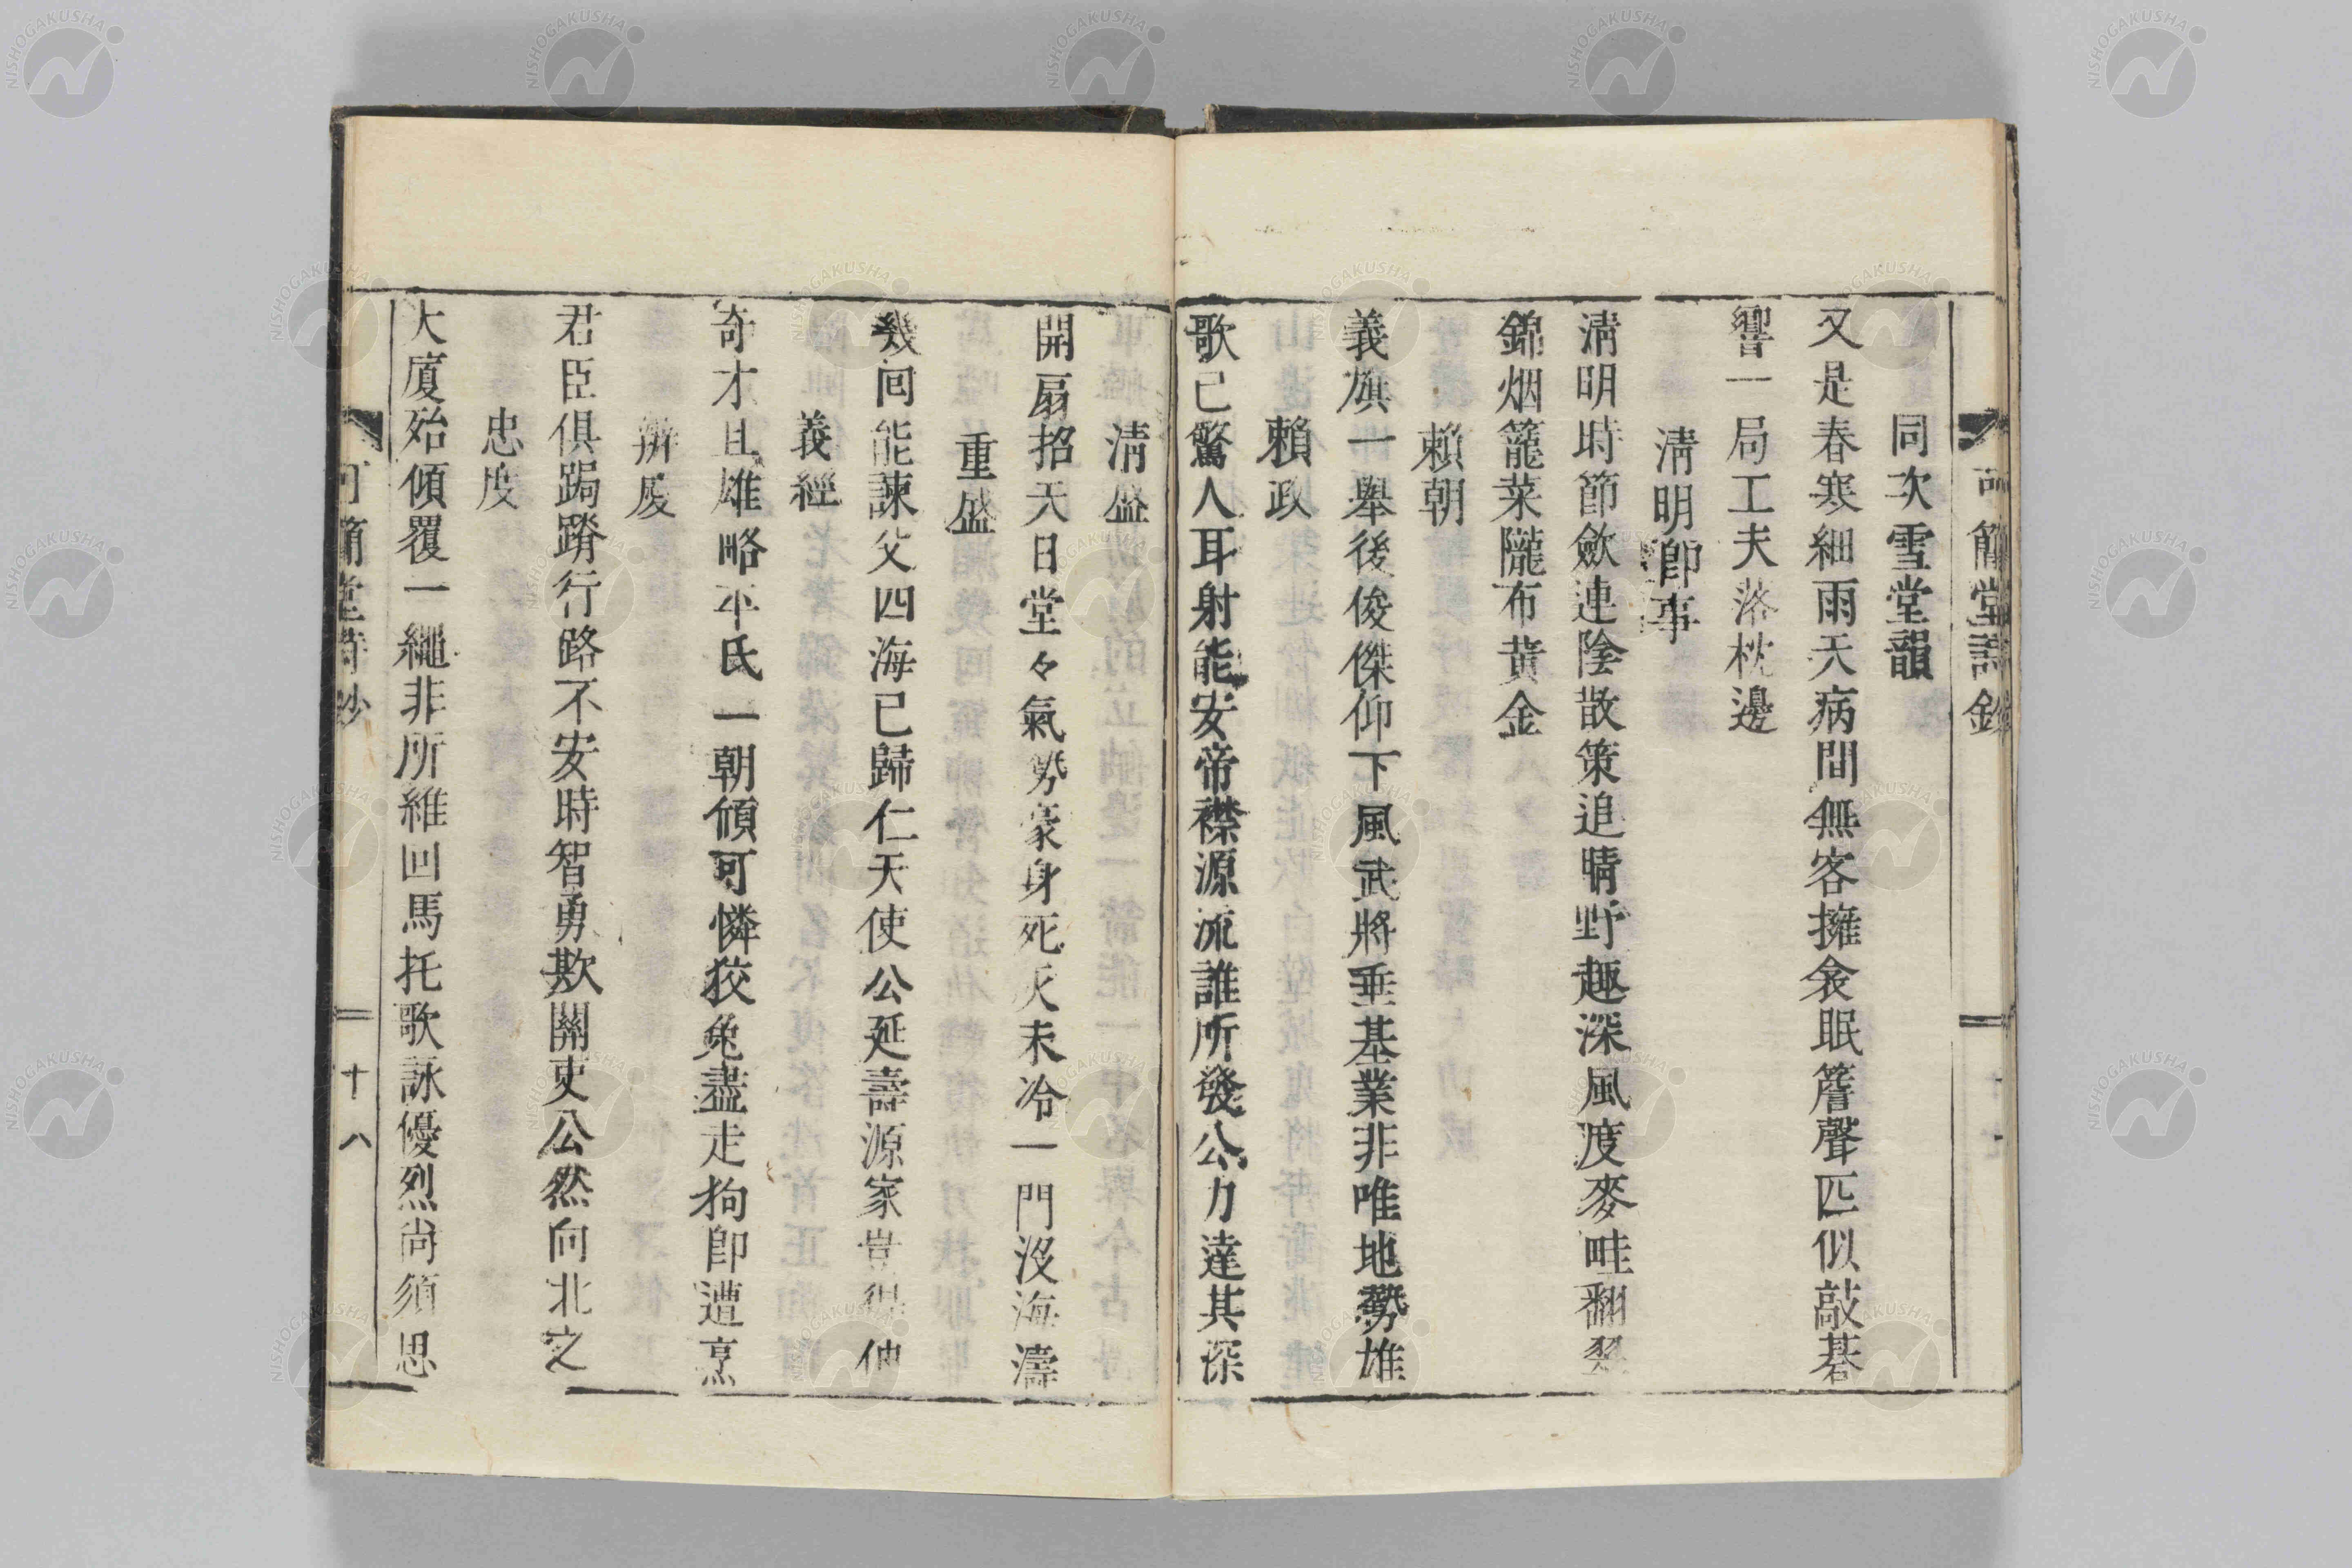 可簡堂詩鈔
同次雪堂韻
又是春寒細雨天病間無客擁衾眠簷聲匹似敲碁
響一局工夫落枕邊
淸明卽事
淸明時節歛連陰散策追晴野趣深風度麥畦翻翠
錦烟籠菜隴布黃金
賴朝
義旗一舉後俊傑仰下風武將垂基業非唯地勢雄
賴政
歌已驚人耳射能安帝襟源流誰所發公力達其深
淸盛
開扇招天日堂々氣勢豪身死灰未冷一門沒海濤
重盛
幾囘能諫父四海已歸仁天使公延壽源家豈得伸
義經
奇才且雄略平氏一朝傾可憐狡兔盡走狗卽遭烹
辨慶
君臣俱跼蹐行路不安時智勇欺關吏公然向北之
忠度
大廈殆傾覆一繩非所維回馬托歌詠優烈尚須思
可簡堂詩鈔
十八
NISHOGAKUSHA